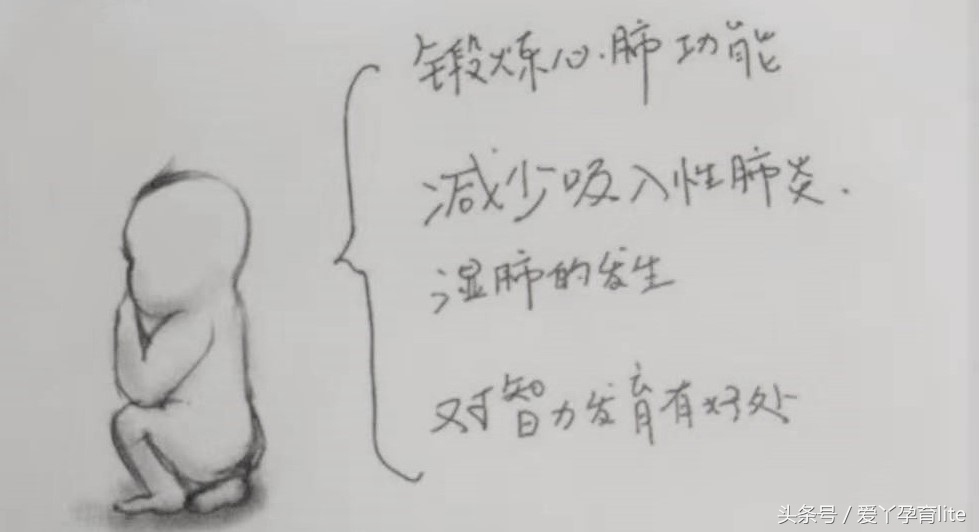 锻炼心.肺功能
减少吸入性肺炎.
湿肺的发生
对智力发育有好处
头条号 / 爱丫孕育lite